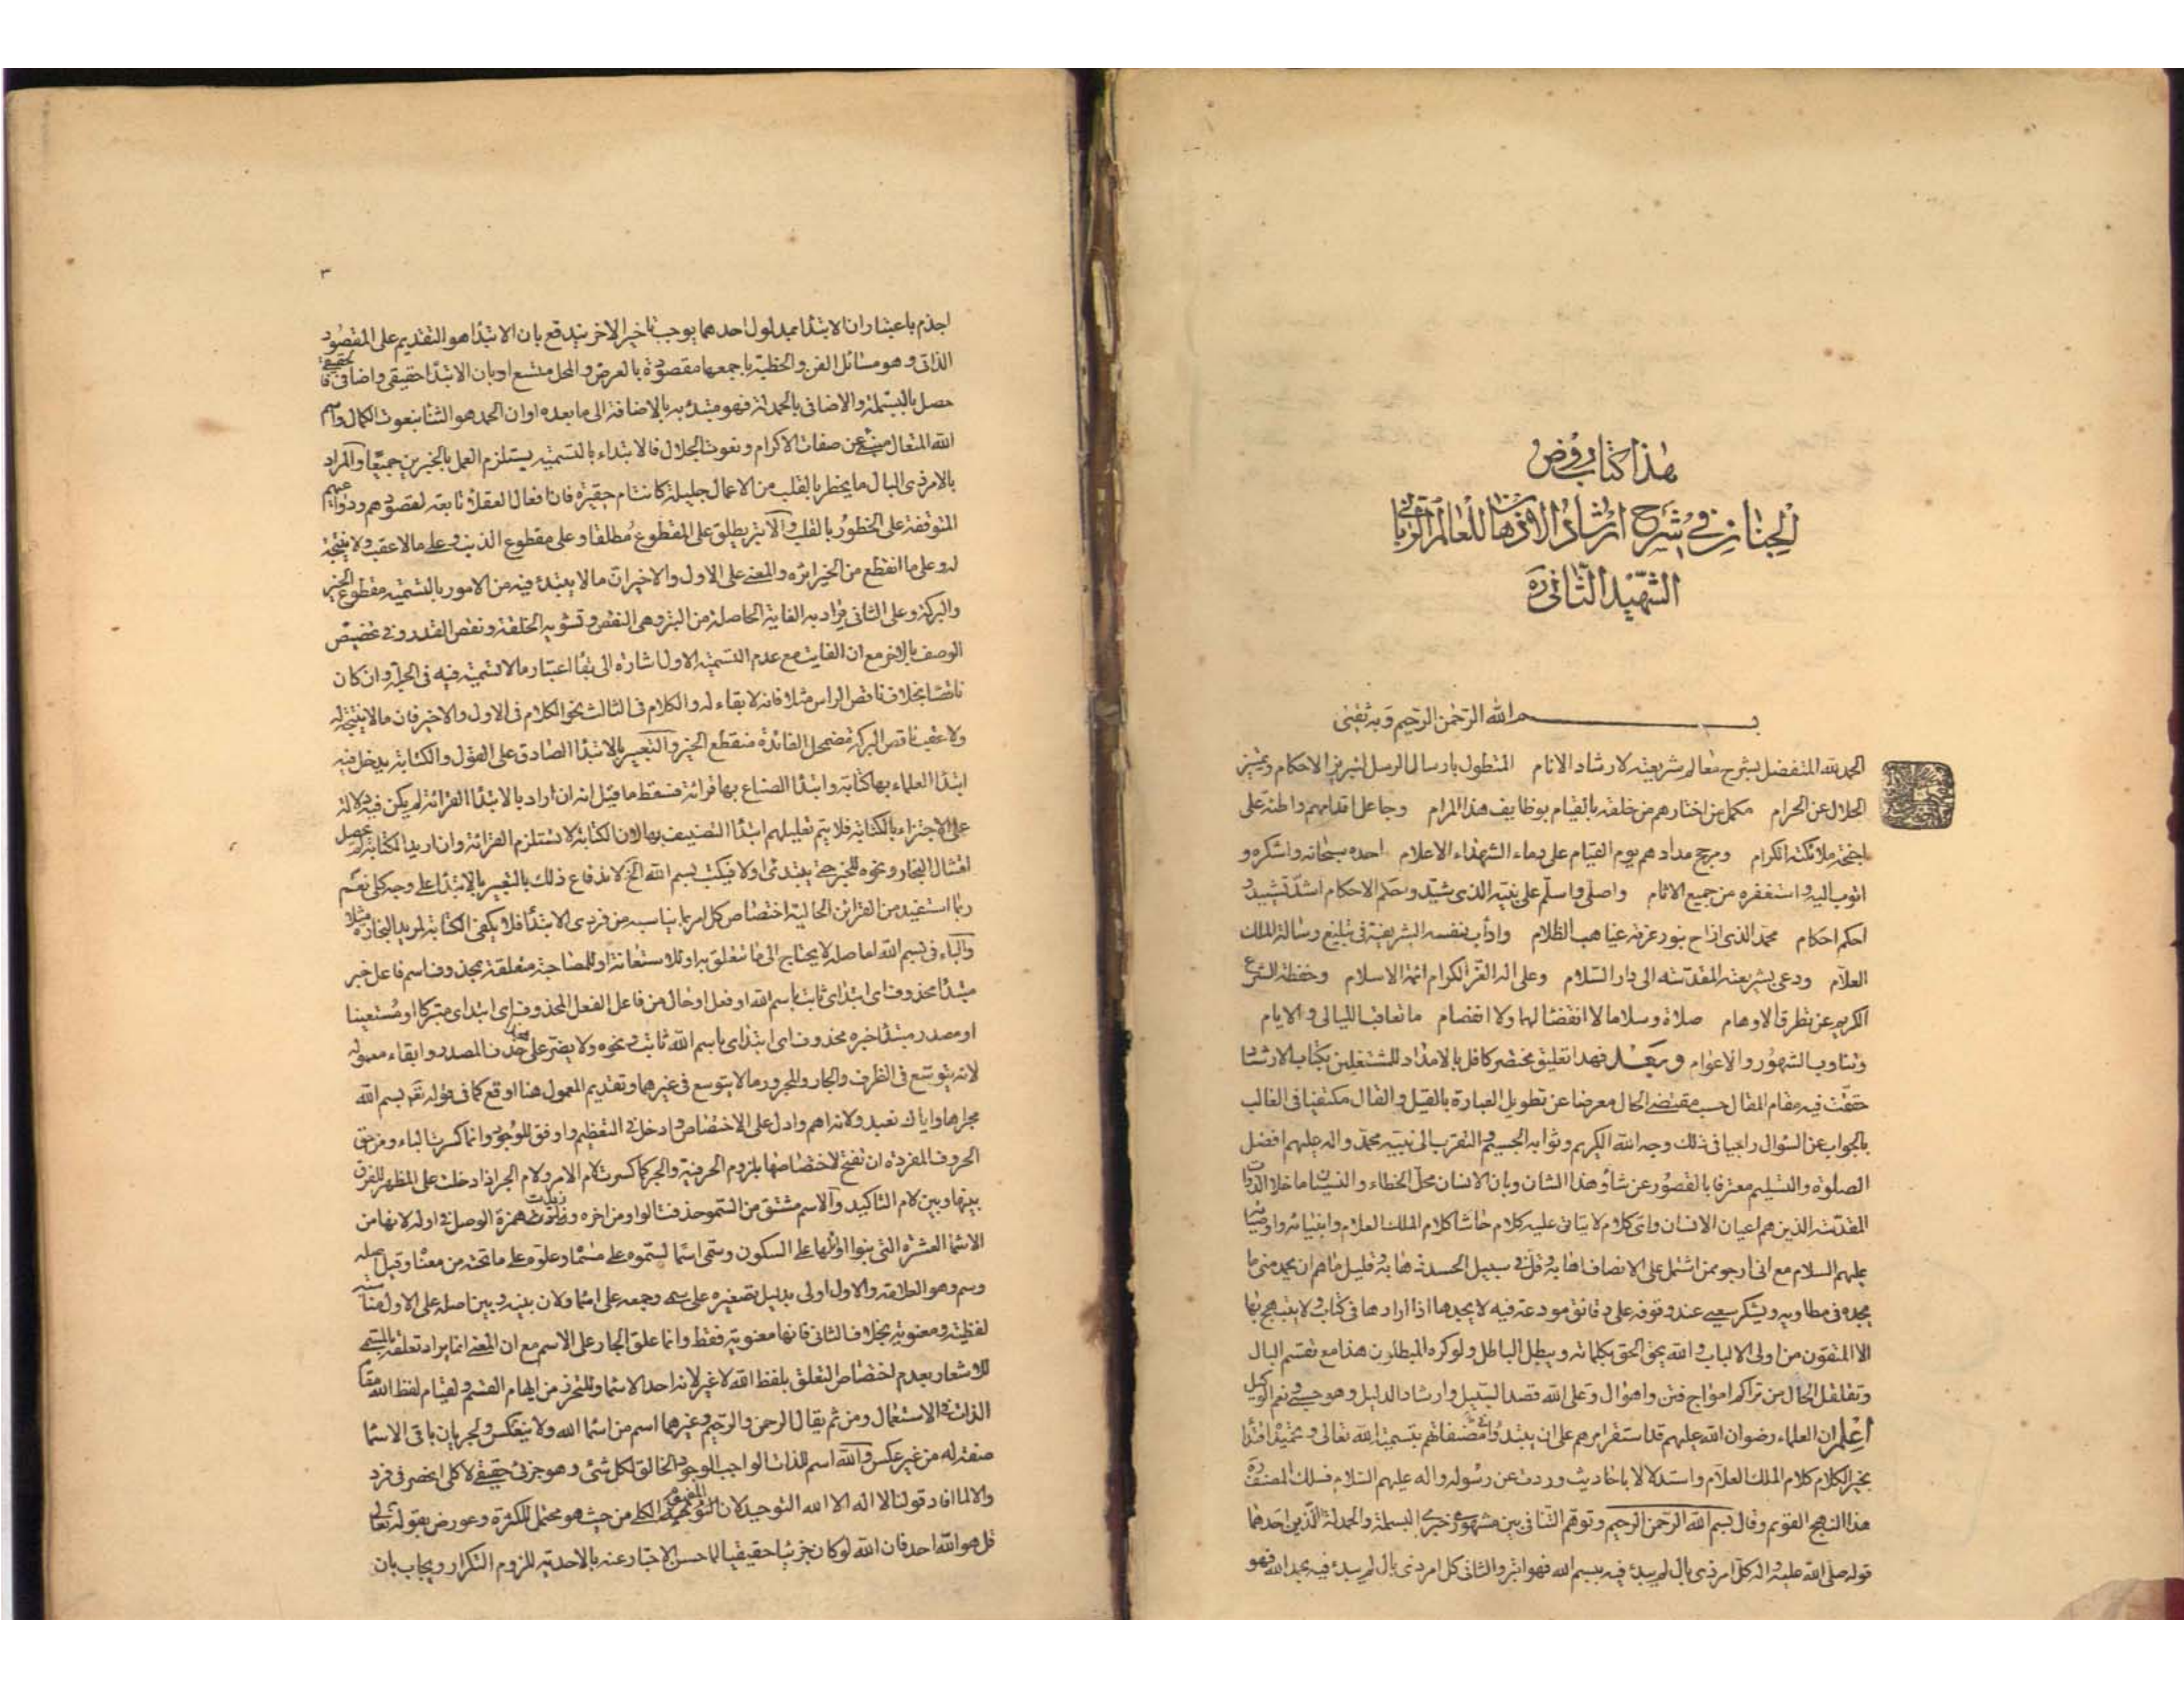 هذا كتاب روض
الجنان في شرح ارشاد الاذهان للعالم الربانى
الشهيد الثانى ره
بسم الله الرحمن الرحيم وبه ثقتى
الحمد لله المتفضل بشرح معالم شريعته لارشاد الانام المتطول بارسال الرسل لتبريز الاحكام وتميز
الحلال عن الحرام مكمل من اختارهم من خلقه بالقيام بوظايف هذا المرام وجاعل اقدامهم واطئة على
اجنحة ملائكته الكرام ومرجح مدادهم يوم القيام على دماء الشهداء الاعلام احمده سبحانه واشكره و
اتوب اليه واستغفره من جميع الاثام واصلى واسلم على نبيه الذى شيد وحكم الاحكام اشد تشييد و
احكم احكام محمد الذى ازاح بنور عزفه غياهب الظلام واداب بنفسه الشريفة في تبليغ رسالة الملك
العلام ودعى بشريعته المقدسه الى دار السلام وعلى اله الغر الكرام ائمة الاسلام وحفظة الشرع
الكريم عن تطرق الاوهام صلاة وسلاما لا انفصا لها ولا انفصام ما تعاقب الليالى والايام
وتناوب الشهور والاعوام وبعد فهذا تعليق مختصر كافل بالامداد للمشتغلين بكتاب الارشاد
حققت فيه مقام المقال حسب مقتضى الحال معرضا عن تطويل العبارة بالقيل والقال مكتفيا في الغالب
بالجواب عن السؤال راجيا في ذلك وجه الله الكريم وثوابه الجسيم والتقرب الى نبيه محمد واله عليهم افضل
الصلوة والتسليم معترفا بالقصور عن شأو هذا الشان وبان الانسان محل الخطاء والنسيان ما خلا الذوات
المقدسة الذين هم اعيان الانسان واى كلام لا يتاتى عليه كلام حاشا كلام الملك العلام وانبيائه واوصيائهم
عليهم السلام مع انى ارجو ممن اشتمل على الانصاف اهابه وقل في سبيل الحسد ذهابه وقليل ما هم ان يحمد منى ما
يجده في مطاويه ويشكر سعيي عند وقوفه على دقائق مودعة فيه لا يجدها اذا ارادها في كتاب ولا يبتهج بها
الا المتقون من اولى الالباب والله يحق الحق بكلماته ويبطل الباطل ولو كره المبطلون هذا مع تقسم البال
وتقلقل الحال من تراكم امواج فتن واهوال وعلى الله قصد السبيل وارشاد الدليل وهو حسبى ونعم الوكيل
اعلم ان العلماء رضوان الله عليهم قد استقر امرهم على ان يبتدؤا في مصنفاتهم بتسمية الله تعالى وتحميده اقتداء
بخير الكلام كلام الملك العلام واستدلالا باحاديث وردت عن رسوله واله عليهم السلام فسلك المصنف ره
هذا النهج القويم وقال بسم الله الرحمن الرحيم وتوهم التنافى بين مشهورى خبرى البسملة والحمدلة الذين احدهما
قوله صلى الله عليه واله كل امر ذى بال لم يبدء فيه ببسم الله فهو ابتر والثانى كل امر ذى بال لم يبدء فيه بحمد الله فهو
٣
اجذم باعتبار ان الابتدا بمدلول احدهما يوجب تاخير الاخر يندفع بان الابتدا هو التقديم على المقصود
الذاتى وهو مسائل الفن والخطبة باجمعها مقصودة بالعرض والمحل متسع او بان الابتدا حقيقى واضافى فالحقيقى
حصل بالبسملة والاضافى بالحمدلة فهو مبتدء به بالاضافة الى ما بعده او ان الحمد هو الثناء بنعوت الكمال واسم
الله المتعال منبئ عن صفات الاكرام ونعوت الجلال فالابتداء بالتسمية يستلزم العمل بالخبرين جميعا والمراد
بالامر ذى البال ما يخطر بالقلب من الاعمال جليلة كانت ام حقيرة فان افعال العقلا تابعة لقصودهم ودواعيهم
المتوقفة على الخطور بالقلب والابتر يطلق على المقطوع مطلقا وعلى مقطوع الذنب وعلى ما لا عقب ولا نتيجة
له وعلى ما انقطع من الخير اثره والمعنى على الاول والاخير ان ما لا يبتدء فيه من الامور بالتسمية مقطوع الخير
والبركة وعلى الثانى يراد به الغاية الحاصلة من البتر وهى النقص وتشويه الخلقة ونقص القدر وفى تخصيص
الوصف بالابتر مع ان الفايت مع عدم التسمية الاول اشارة الى بقاء اعتبار ما لا تسمية فيه في الجملة وان كان
ناقصا بخلاف ناقص الراس مثلا فانه لا بقاء له والكلام في الثالث نحو الكلام في الاول والاخير فان ما لا نتيجة له
ولا عقب ناقص البركة مضمحل الفائدة منقطع الخير والتعبير بالابتدا الصادق على القول والكتابة يدخل فيه
ابتدا العلماء بها كتابة وابتدا الصناع بها قرائة فسقط ما قيل انه ان اراد بالابتدا القرائة لم يكن فيه دلالة
على الاجتزاء بالكتابة فلا يتم تعليلهم ابتدا التصنيف بها لان الكتابة لا تستلزم القرائة وان اريد الكتابة لم يحصل
امتثال النجار ونحوه للخبر حتى يبتدئ اولا فيكتب بسم الله الخ لاندفاع ذلك بالتعبير بالابتدا على وجه كلى نعم
ربما استفيد من القرائن الحالية اختصاص كل امر بما يناسبه من فردى الابتدا فلا يكفى الكتابة لمريد النجارة مثلا
والباء في بسم الله اما صلة لا يحتاج الى ما تتعلق به او للاستعانة او للمصاحبة متعلقة بمحذوف اسم فاعل خبر
مبتدا محذوف اى ابتداى ثابت باسم الله او فعل او حال من فاعل الفعل المحذوف اى ابتداى متبركا او مستعينا
او مصدر مبتدا خبره محذوف اى ابتداى باسم الله ثابت ونحوه ولا يضر على هذا حذف المصدر وابقاء معموله
لانه يتوسع في الظرف والجار والمجرور ما لا يتوسع في غيرهما وتقديم المعمول هنا اوقع كما في قوله تعالى بسم الله
مجراها واياك نعبد ولانه اهم وادل على الاختصاص وادخل في التعظيم واوفق للوجود وانما كسرت الباء ومن حق
الحروف المفردة ان تفتح لاختصاصها بلزوم الحرفية والجر كما كسرت لام الامر ولام الجر اذا دخلت على المظهر للفرق
بينها وبين لام التاكيد والاسم مشتق من السمو حذفت الواو من اخره وزيدت همزة الوصل في اوله لانها من
الاسماء العشرة التى بنوا اوائلها على السكون وسمى اسما لسموه على مسماه وعلوه على ما تحته من معناه وقيل اصله
وسم وهو العلامة والاول اولى بدليل تصغيره على سمى وجمعه على اسما ولان بينه وبين اصله على الاول مناسبة
لفظية ومعنوية بخلاف الثانى فانها معنوية فقط وانما علق الجار على الاسم مع ان المعنى انما يراد تعلقه بالمسمى
للاشعار بعدم اختصاص التعلق بلفظ الله لا غير لانه احد الاسما وللتحرز من ايهام القسم ولقيام لفظ الله مقام
الذات في الاستعمال ومن ثم يقال الرحمن والرحيم وغيرهما اسم من اسما الله ولا ينعكس ولجريان باقى الاسما
صفة له من غير عكس والله اسم للذات الواجب الوجود الخالق لكل شئ وهو جزئى حقيقى لا كلى انحصر في فرد
والا لما افاد قولنا لا اله الا الله التوحيد لان المفهوم الكلى من حيث هو محتمل للكثرة وعورض بقوله تعالى
قل هو الله احد فان الله لو كان جزئيا حقيقيا لما حسن الاخبار عنه بالاحدية للزوم التكرار ويجاب بان